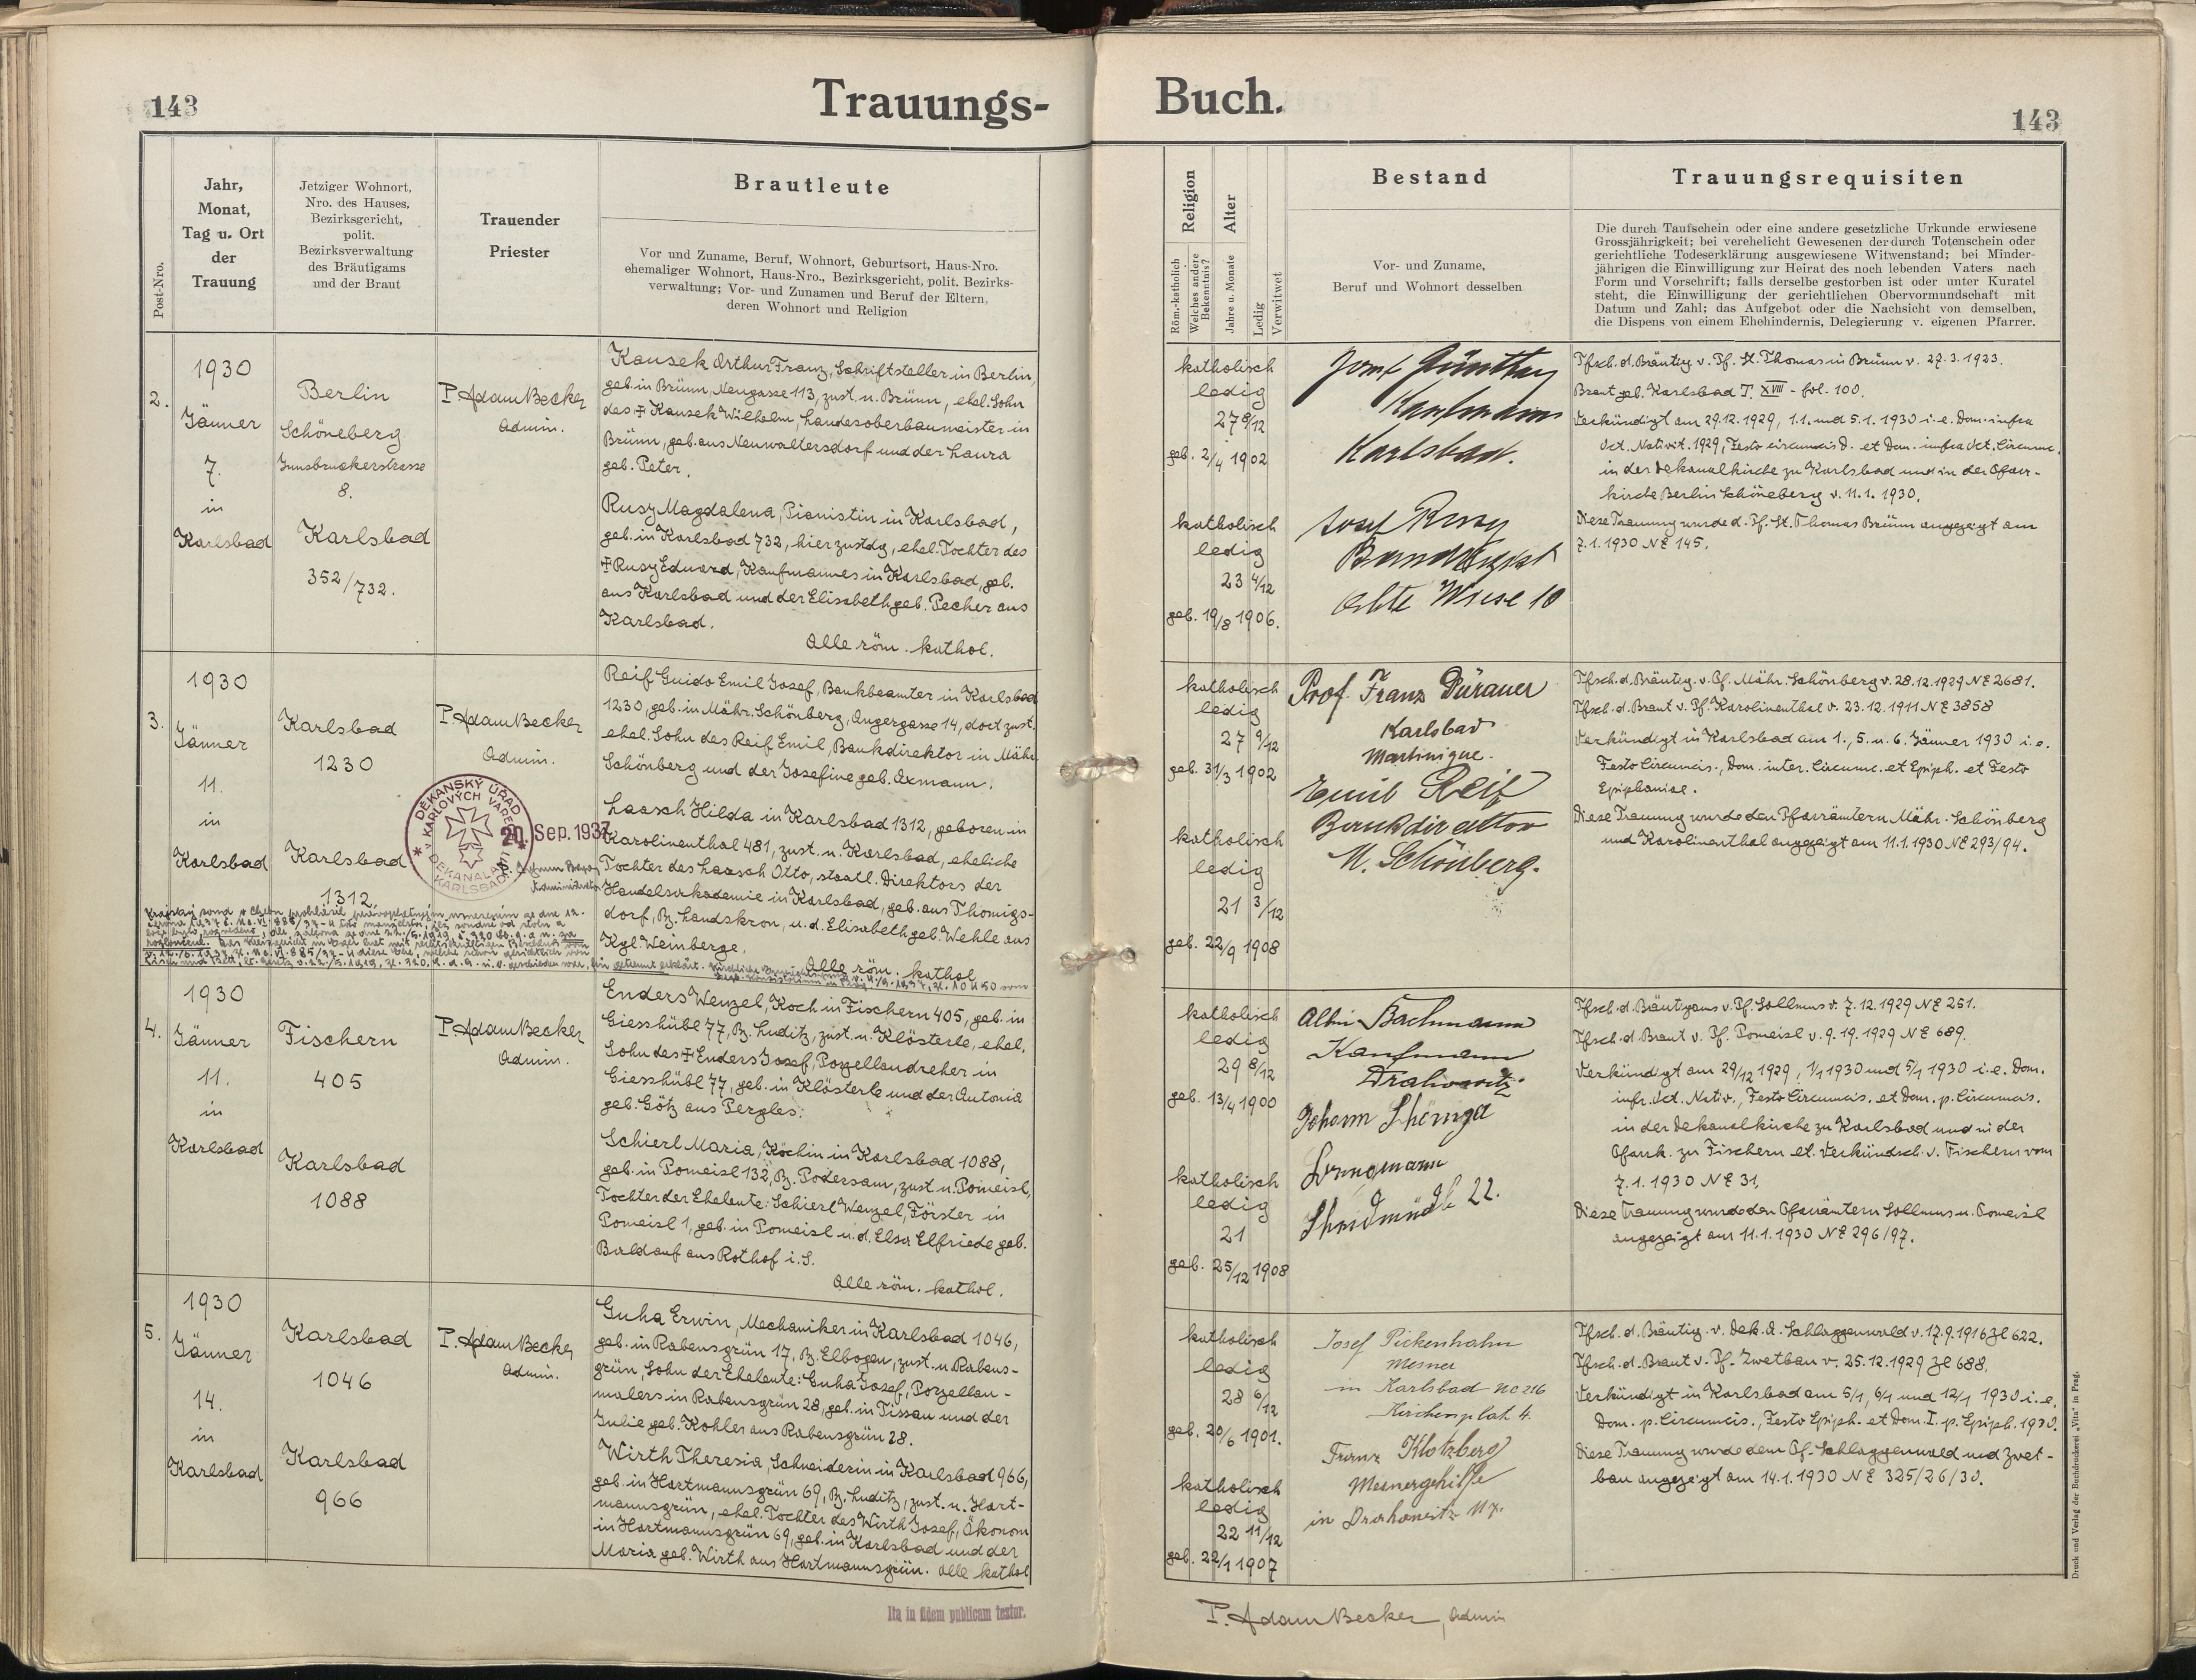 143
Trauungs-
Buch.
143
Post-Nro.
Jahr,
Monat,
Tag u. Ort
der
Trauung
Jetziger Wohnort,
Nro. des Hauses,
Bezirksgericht,
polit.
Bezirksverwaltung
des Bräutigams
und der Braut
Trauender
Priester
Brautleute
Vor und Zuname, Beruf, Wohnort, Geburtsort, Haus-Nro.
ehemaliger Wohnort, Haus-Nro., Bezirksgericht, polit. Bezirks-
verwaltung; Vor- und Zunamen und Beruf der Eltern,
deren Wohnort und Religion
Religion
Röm.-katholisch
Welches andere
Bekenntnis?
Alter
Jahre u. Monate
Ledig
Verwitwet
Bestand
Vor- und Zuname,
Beruf und Wohnort desselben
Trauungsrequisiten
Die durch Taufschein oder eine andere gesetzliche Urkunde erwiesene
Grossjährigkeit; bei verehelicht Gewesenen der durch Totenschein oder
gerichtliche Todeserklärung ausgewiesene Witwenstand; bei Minder-
jährigen die Einwilligung zur Heirat des noch lebenden Vaters nach
Form und Vorschrift; falls derselbe gestorben ist oder unter Kuratel
steht, die Einwilligung der gerichtlichen Obervormundschaft mit
Datum und Zahl; das Aufgebot oder die Nachsicht von demselben,
die Dispens von einem Ehehindernis, Delegierung v. eigenen Pfarrer.
2.
1930
Jänner
7.
in
Karlsbad
Berlin
Schöneberg
Innsbruckerstrasse
8.
Karlsbad
352/732.
P. Adam Becker
Admin.
Kausek Arthur Franz, Schriftsteller in Berlin,
geb. in Brünn, Neugasse 113, zust. n. Brünn, ehel. Sohn
des ‡ Kausek Wilhelm, Landesoberbaumeister in
Brünn, geb. aus Neuwaltersdorf und der Laura
geb. Peter.
Rusy Magdalena, Pianistin in Karlsbad,
geb. in Karlsbad 732, hier zustdg, ehel. Tochter des
‡ Rusy Eduard, Kaufmannes in Karlsbad, geb.
aus Karlsbad und der Elisabeth geb. Pecher aus
Karlsbad.
Alle röm. kathol.
katholisch
ledig
27 8/12
geb. 2/4 1902
katholisch
ledig
23 4/12
geb. 19/8 1906.
Josef Günther
Kaufmann
Karlsbad.
Josef Rusy
Alte Wiese 10
Tfsch. d. Bräutig v. Pf. St. Thomas in Brünn v. 27.3.1923.
Braut geb. Karlsbad T. XVIII - fol. 100.
Verkündigt am 29.12.1929, 1.1. und 5.1. 1930 i. e. Dom. infra
Oct. Nativit. 1929, Festo circumcis D. et Dom. infra Oct. Circumc.
in der Dekanalkirche zu Karlsbad und in der Pfarr-
kirche Berlin Schöneberg v. 11.1. 1930.
Diese Trauung wurde d. Pf. St. Thomas Brünn angezeigt am
7.1.1930 NE 145.
3.
1930
Jänner
11.
in
Karlsbad
Karlsbad
1230
Karlsbad
1312.
P. Adam Becker
Admin.
DĚKANSKÝ ÚŘAD
v KARLOVÝCH VARECH
DEKANALAMT
KARLSBAD
20. Sep. 1937
Reif Guido Emil Josef, Bankbeamter in Karlsbad
1230, geb. in Mähr. Schönberg, Angergasse 14, dort zust.
ehel. Sohn des Reif Emil, Bankdirektor in Mähr.
Schönberg und der Josefine geb. Axmann.
Laasch Hilda in Karlsbad 1312, geboren in
Karolinenthal 481, zust. n. Karlsbad, eheliche
Tochter des Laasch Otto, staatl. Direktors der
Handelsakademie in Karlsbad, geb. aus Thomigs-
dorf, Bz. Landskron, u. d. Elisabeth geb. Wehle aus
Kgl. Weinberge.
Alle röm. kathol
katholisch
ledig
27 9/12
geb. 31/3 1902
katholisch
ledig
21 3/12
geb. 22/9 1908
Prof. Franz Dürauer
Karlsbad
Martinique.
Emil Reif
Bankdirektor
M. Schönberg.
Tfsch. d. Bräutig. v. Pf. Mähr. Schönberg v. 28.12.1929 NE 2681.
Tfsch. d. Braut v. Pf. Karolinenthal v. 23.12.1911 NE 3858
Verkündigt in Karlsbad am 1., 5. u. 6. Jänner 1930 i. e.
Festo Circumcis., Dom. inter. Circumc. et Epiph. et Festo
Epiphaniae.
Diese Trauung wurde den Pfarrämtern Mähr. Schönberg
und Karolinenthal angezeigt am 11.1.1930 NE 293/94.
4.
1930
Jänner
11.
in
Karlsbad
Fischern
405
Karlsbad
1088
P. Adam Becker
Admin.
Enders Wenzel, Koch in Fischern 405, geb. in
Giesshübl 77, Bz. Luditz, zust. n. Klösterle, ehel.
Sohn des ‡ Enders Josef, Porzellandreher in
Giesshübl 77, geb. in Klösterle und der Antonia
geb. Götz aus Pergles.
Schierl Maria, Köchin in Karlsbad 1088,
geb. in Pomeisl 132, Bz. Podersam, zust. n. Pomeisl,
Tochter der Eheleute: Schierl Wenzel, Förster in
Pomeisl 1, geb. in Pomeisl u. d. Elsa Elfriede geb.
Baldauf aus Rothof i. S.
Alle röm. kathol.
katholisch
ledig
29 8/12
geb. 13/4 1900
katholisch
ledig
21
geb. 25/12 1908
Albin Bachmann
Kaufmann
Drahowitz
Johann
22.
Tfsch. d. Bräutgams v. Pf. Sollmus v. 7.12.1929 NE 251.
Tfsch. d. Braut v. Pf. Pomeisl v. 9.19.1929 NE 689.
Verkündigt am 29/12 1929, 1/1 1930 und 5/1 1930 i. e. Dom.
infr. Oct. Nativ., Festo Circumcis. et Dom. p. Circumcis.
in der Dekanalkirche zu Karlsbad und in der
Pfarrk. zu Fischern lt. Verkündsch. v. Fischern vom
7.1.1930 NE 31.
Diese Trauung wurde den Pfarrämtern Sollmus u. Pomeisl
angezeigt am 11.1.1930 NE 296/97.
5.
1930
Jänner
14.
in
Karlsbad
Karlsbad
1046
Karlsbad
966
P. Adam Becker
Admin.
Guha Erwin, Mechaniker in Karlsbad 1046,
geb. in Rabensgrün 17, Bz. Elbogen, zust. n. Rabens-
grün, Sohn der Eheleute: Guha Josef, Porzellan-
malers in Rabensgrün 28, geb. in Tissau und der
Julie geb. Kohler aus Rabensgrün 28.
Wirth Theresia, Schneiderin in Karlsbad 966,
geb. in Hartmannsgrün 69, Bz. Luditz, zust. n. Hart-
mannsgrün, ehel. Tochter des Wirth Josef, Ökonom
in Hartmannsgrün 69, geb. in Karlsbad und der
Maria geb. Wirth aus Hartmannsgrün. Alle kathol
katholisch
ledig
28 6/12
geb. 20/6 1901.
katholisch
ledig
22 11/12
geb. 22/1 1907
Josef Pickenhahn
Mesner
in Karlsbad NC 216
Kirchenplatz 4.
Franz Klotzberg
Mesnergehilfe
in Drahowitz 117.
Tfsch. d. Bräutig. v. Dek. A. Schlaggenwald v. 17.9.1916 Zl 622.
Tfsch. d. Braut v. Pf. Zwetbau v. 25.12.1929 Zl 688.
Verkündigt in Karlsbad am 5/1, 6/1 und 12/1 1930 i. e.
Dom. p. Circumcis., Festo Epiph. et Dom. I. p. Epiph. 1930.
Diese Trauung wurde dem Pf. Schlaggenwald und Zwet-
bau angezeigt am 14.1.1930 NE 325/26/30.
Ita in fidem publicam testor.
P. Adam Becker, Admin
Druck und Verlag der Buchdruckerei „Vita" in Prag.